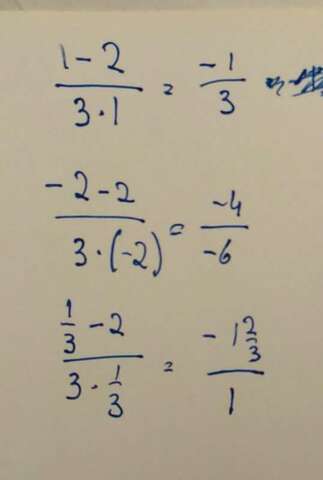 1 - 2 / 3 · 1 = -1 / 3
-2 - 2 / 3 · (-2) = -4 / -6
1/3 - 2 / 3 · 1/3 = -1 2/3 / 1